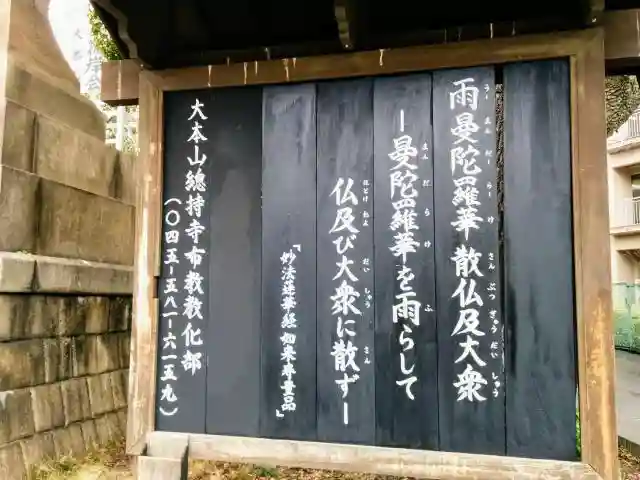 雨曼陀羅華 散仏及大衆
ー曼陀羅華を雨らして
仏及び大衆に散ずー
「妙法蓮華経如来寿量品」
大本山總持寺布教教化部
(〇四五ー五八一ー六一五九)